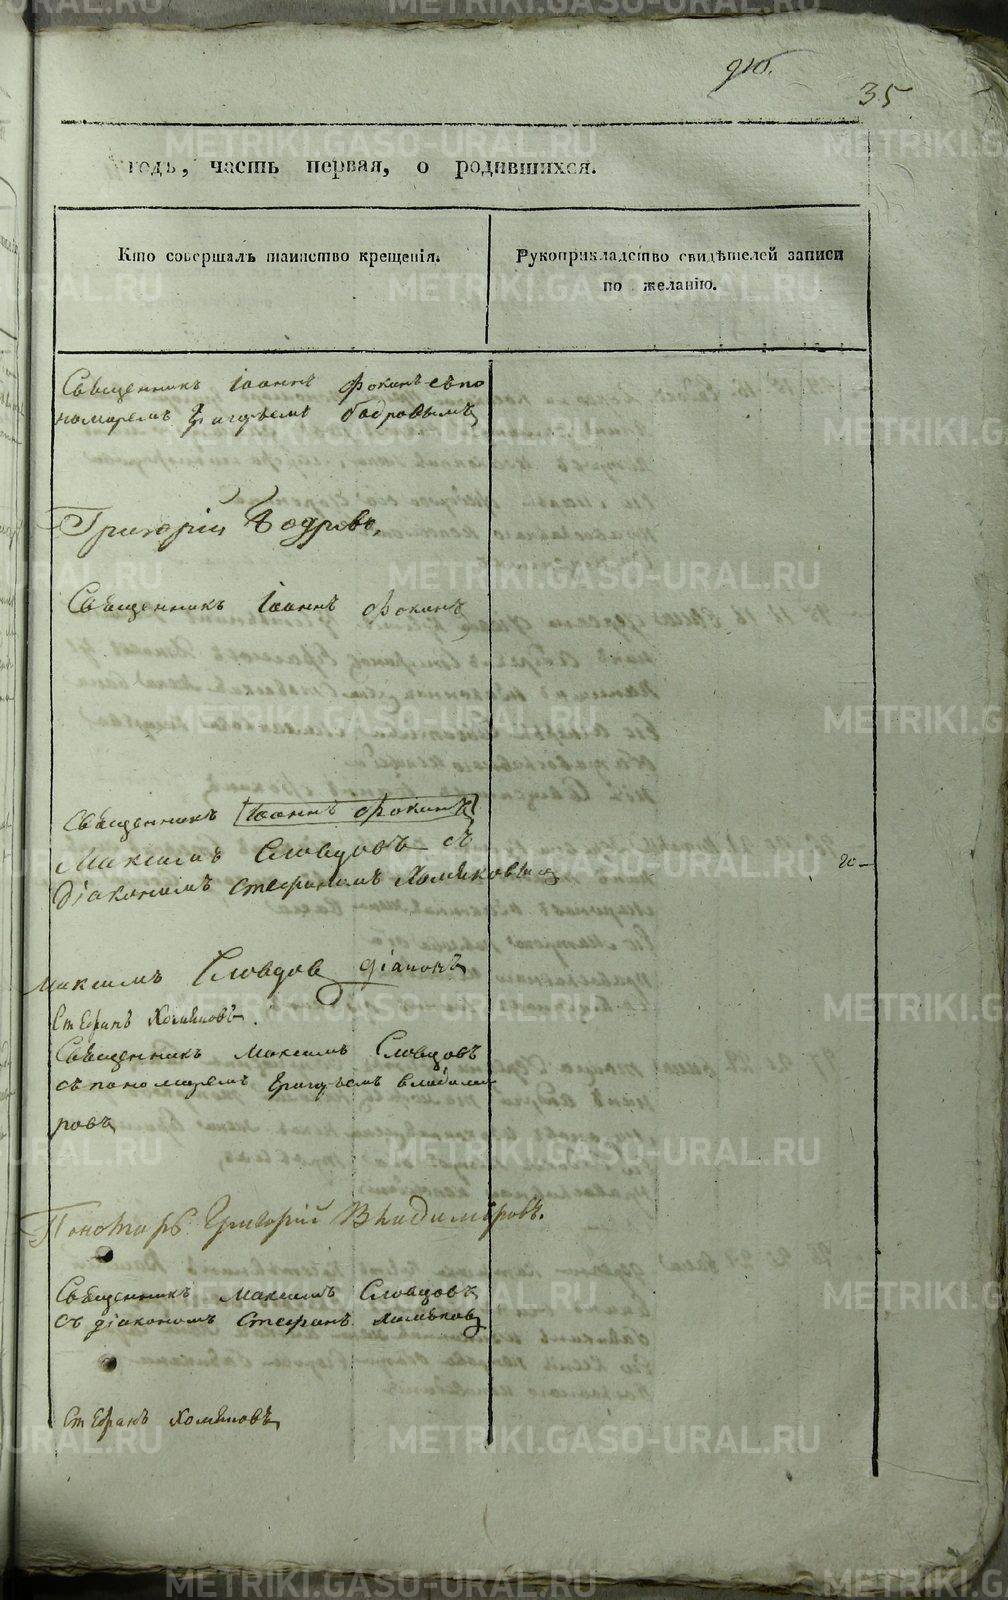 35
годъ, часть первая, о родившихся.
Кто совершалъ таинство крещенія.
Рукоприкладство свидѣтелей записи
по желанію.
Священникъ Іоаннъ Фокинъ съ по
номаремъ Григорьемъ Бодровымъ
Григорій Бодровъ,
Священникъ Іоаннъ Фокинъ
Священникъ Іоаннъ Фокинъ
Максимъ Словцовъ съ
Діакономъ Стефаномъ Хомяковым
Максимъ Словцов діаконъ
Стефанъ Хомяковъ.
Священникъ Максимъ Словцовъ
съ пономаремъ Григорьемъ Владими
ровъ
Пономарь Григорій Владимѣровъ.
Священникъ Максимъ Словцовъ
съ діакономъ Стефанъ Хомяковъ
Стефанъ Хомяковъ
METRIKI.GASO-URAL.RU